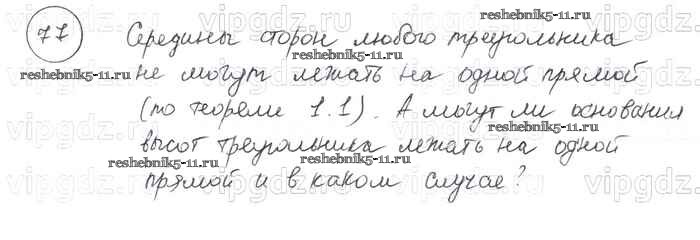 77 Середины сторон любого треугольника
не могут лежать на одной прямой
(по теореме 1.1). А могут ли основания
высот треугольника лежать на одной
прямой и в каком случае?
reshebnik5-11.ru
reshebnik5-11.ru
reshebnik5-11.ru
reshebnik5-11.ru
reshebnik5-11.ru
reshebnik5-11.ru
vipgdz.ru